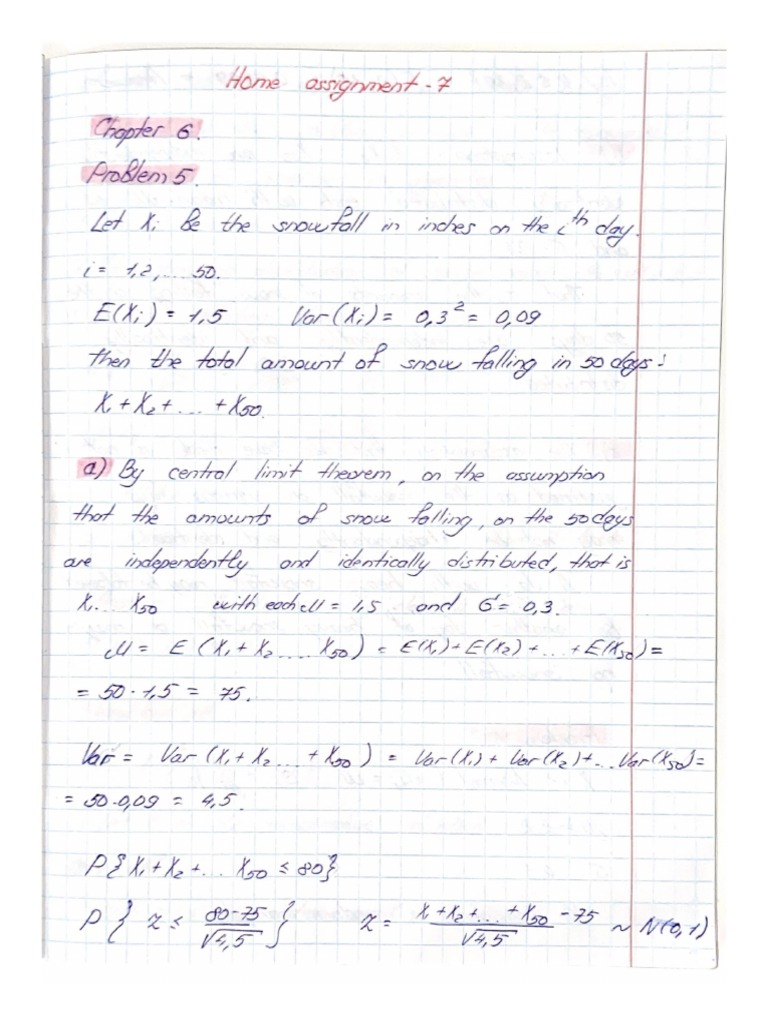 Home assignment - 7
Chapter 6.
Problem 5.
Let Xi Be the snowfall in inches on the i th day.
i = 1,2,... 50.
E(Xi) = 1,5 Var(Xi) = 0,3² = 0,09
then the total amount of snow falling in 50 days:
X1 + X2 + ... + X50.
a) By central limit theorem, on the assumption
that the amounts of snow falling, on the 50 days
are independently and identically distributed, that is
X1... X50 with each μ = 1,5 and σ = 0,3.
μ = E (X1 + X2 .... X50) = E(X1) + E(X2) + ... + E(X50) =
= 50 · 1,5 = 75.
Var = Var (X1 + X2 ... + X50) = Var(X1) + Var(X2) + ... Var(X50) =
= 50 · 0,09 = 4,5.
P{X1 + X2 + ... X50 ≤ 80}
P { z ≤ (80-75)/√4,5 } z = (X1 + X2 + ... + X50 - 75)/√4,5 ~ N(0,1)